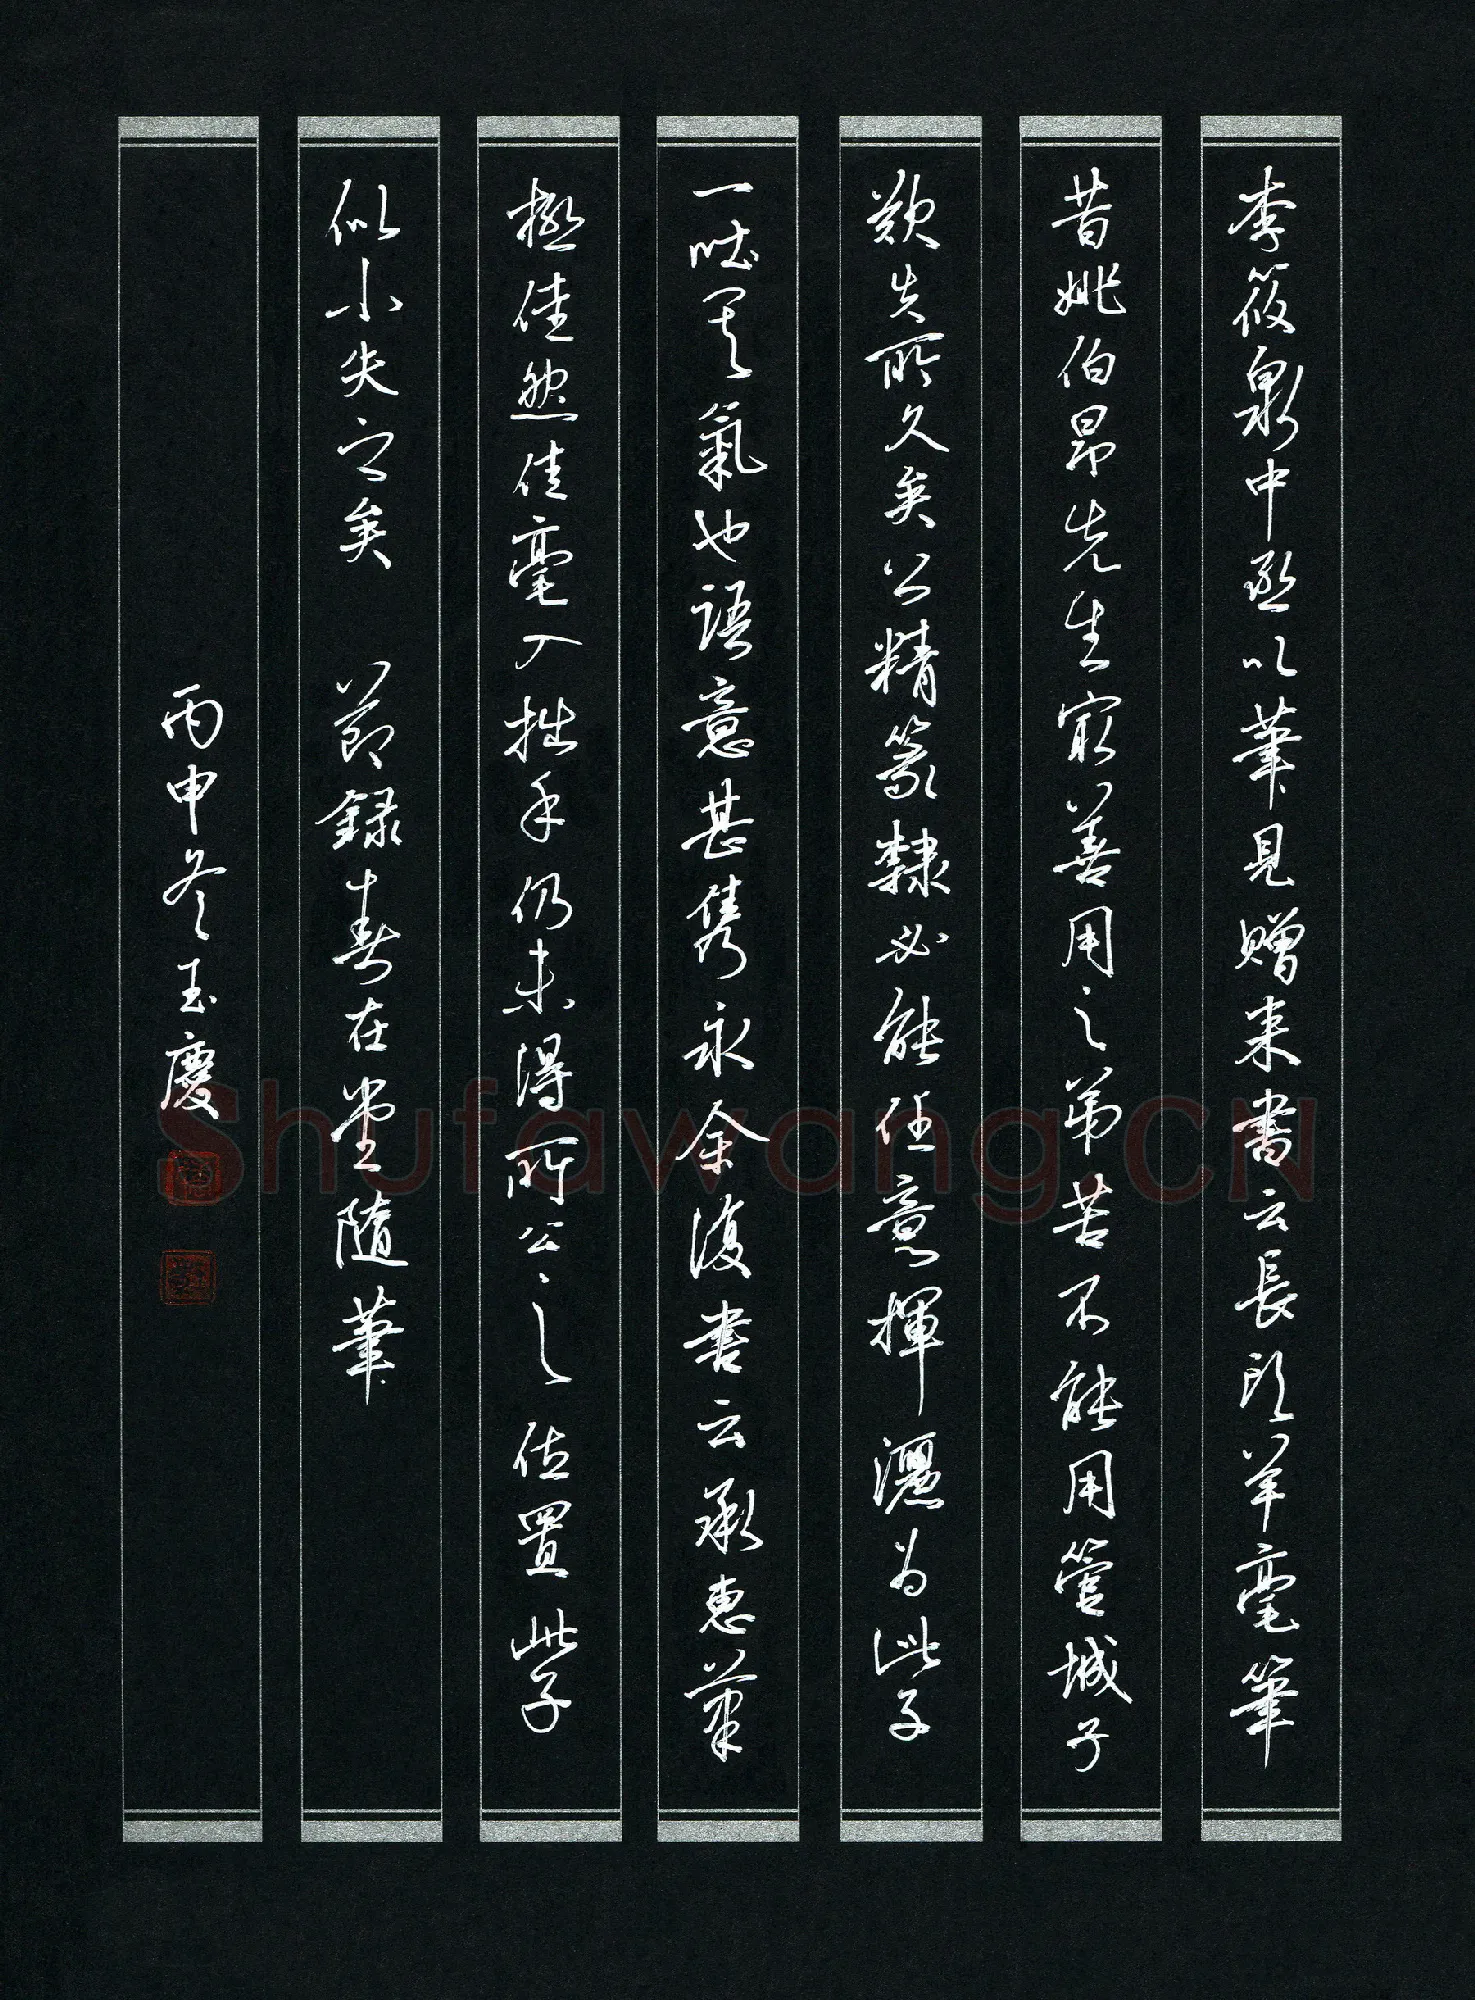 李筱泉中丞以筆見贈來書云長鋒羊毫筆
昔姚伯昂先生最善用之弟苦不能用管城子
歎失所久矣公精篆隸必能任意揮灑為此子
一吐其氣也語意甚雋永余復書云承惠筆
極佳然佳毫入拙手仍未得所公之位置此子
似小失之矣 節錄春在堂隨筆
丙申冬玉慶
Shufawang.CN